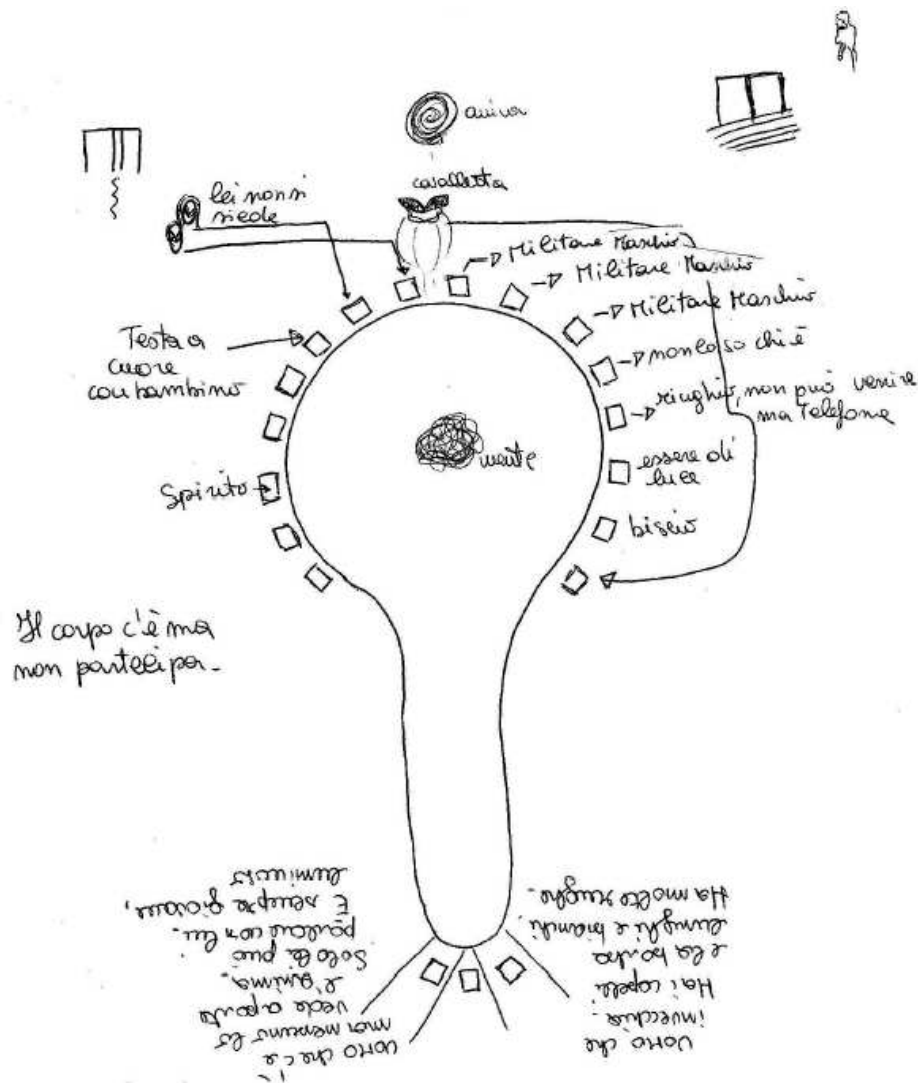 anima
cavalletta
lei non si
siede
Militare Maschio
Militare Maschio
Militare Maschio
Testa a
cuore
con bambino
non lo so chi è
ringhio, non può venire
ma Telefona
mente
essere di
luce
Spirito
biscio
Il corpo c'è ma
non partecipa.
Uomo che
invecchia.
Ha i capelli
e la barba
lunghi e bianchi.
Ha molte rughe.
Uomo che c'è
ma nessuno lo
vede a parte
l'anima.
Solo lei può
parlare con lui.
È sempre giovane,
luminoso